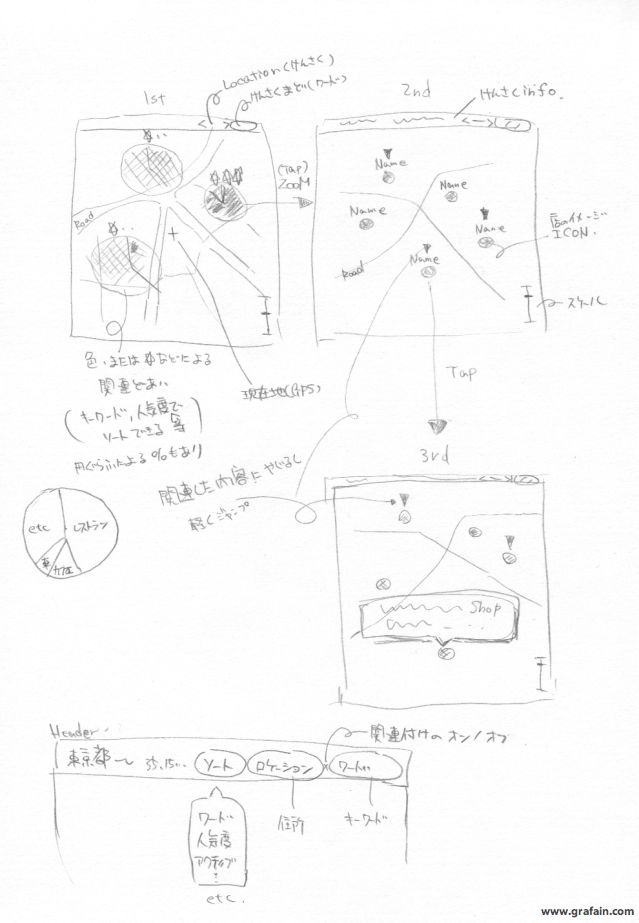 Location(けんさく)
けんさくまど(ワード)
1st
2nd
けんさくinfo.
(Tap)
ZOOM
Name
Name
Name
Name
Name
Road
Road
ICON.
スケール
色、または
などによる
関連どあい
(キーワード、人気度で
ソートできる 等)
円ぐらふによる%もあり
現在地(GPS)
Tap
3rd
関連した内容にやじるし
軽くジャンプ
etc
レストラン
Shop
Header
関連付けのオン/オフ
東京都〜
ソート
ロケーション
ワード
ワード
人気度
アクティブ
etc.
住所
キーワード
www.grafain.com